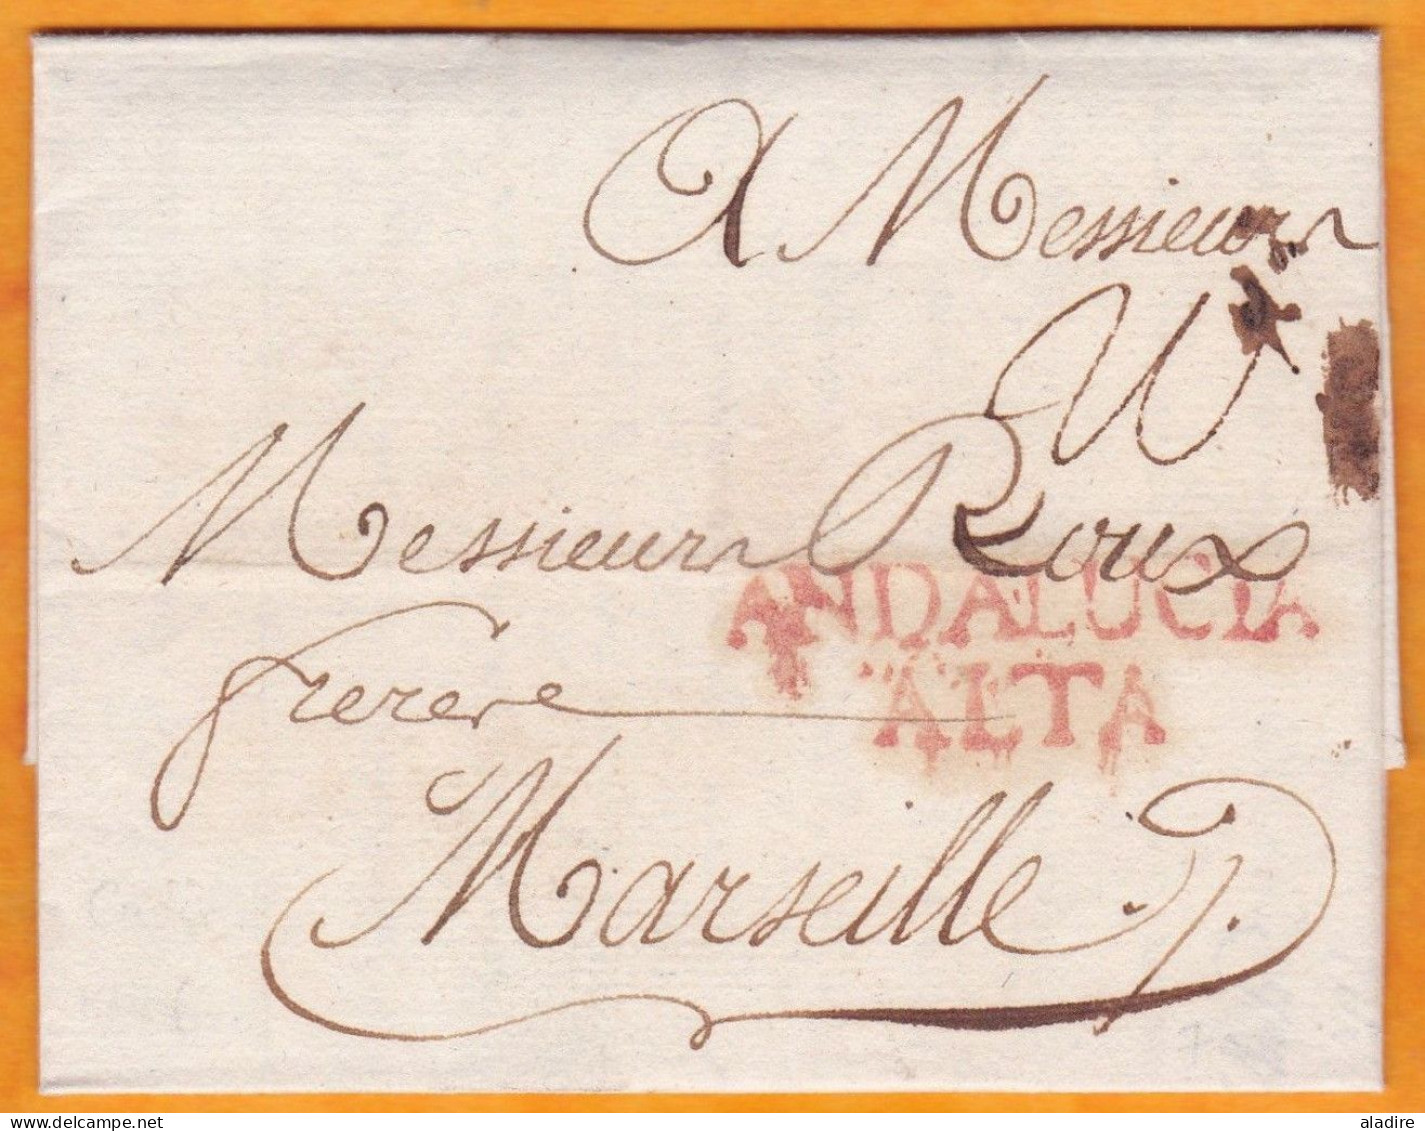 A Messieurs
Messieurs Roux
ANDALUCIA
freres
ALTA
Marseille
delcampe.net
aladire